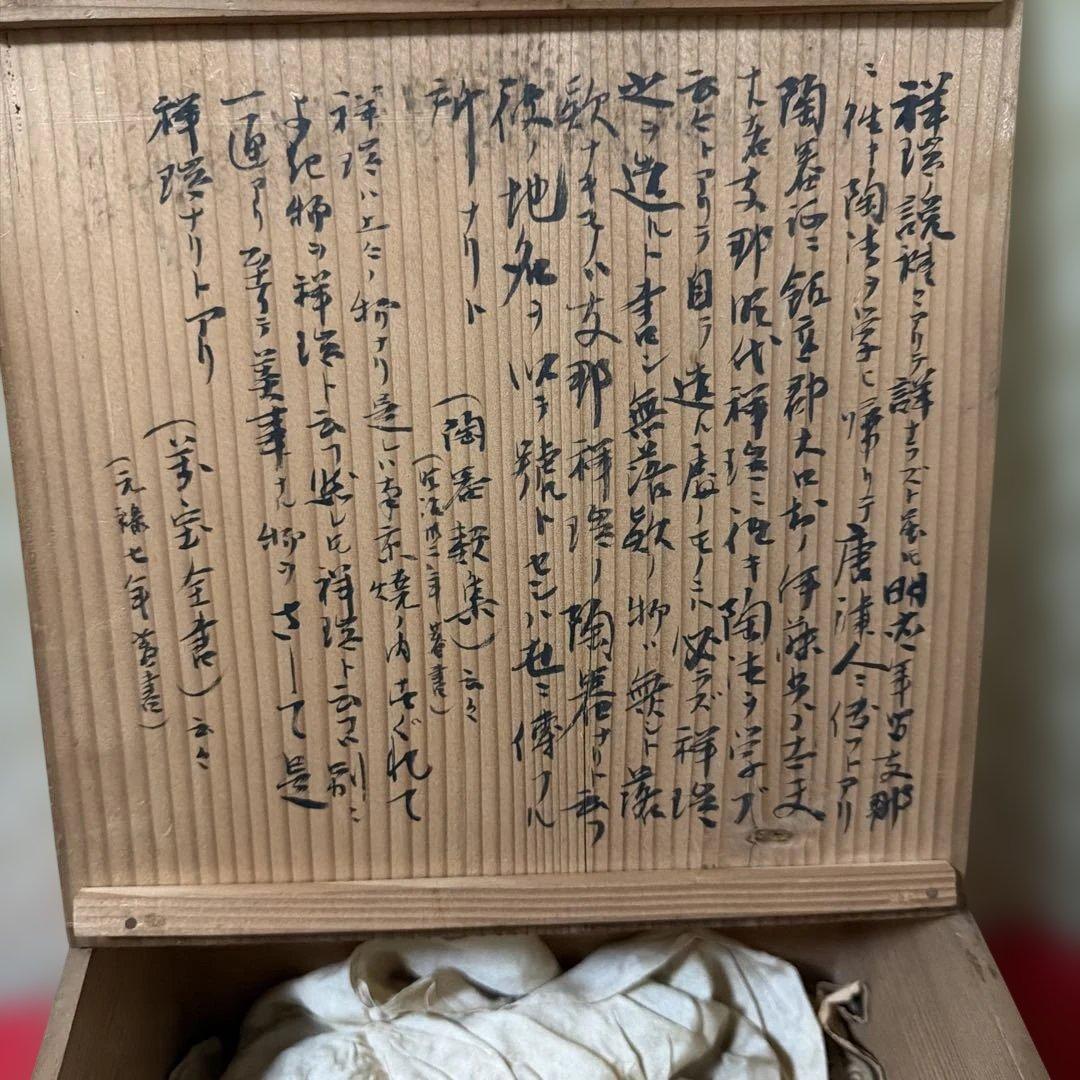 祥瑞ノ説種々アリテ詳ナラズト雖モ明応年宮支那
ニ往キ陶法ヲ学ヒ帰リテ唐津人ニ伝フトアリ
陶器証ニ飯高郡大口村ノ伊藤五良太夫
ナル者支那明代祥瑞ニ往キ陶法ヲ学ブ
云々トアリテ自ラ造ル処ノモノニハ必ラズ祥瑞
之ヲ造ルト書ロン無落款ノ物ハ無シト落
款ナキモノハ支那祥瑞ノ陶器ナリト云フ
彼ノ地名ヲ以テ号トセシハ世ニ伝フル
所ナリト
(陶器類集)云々
祥瑞ハ上々ノ物ナリ是レハ南京焼ノ内すぐれて
よき物ヲ祥瑞ト云フ然レ共祥瑞ト云フハ別ニ
一通アリ至テ美事ナル物ヲさして是
祥瑞ナリトアリ
(萬宝全書)云々
(元禄七年著書)